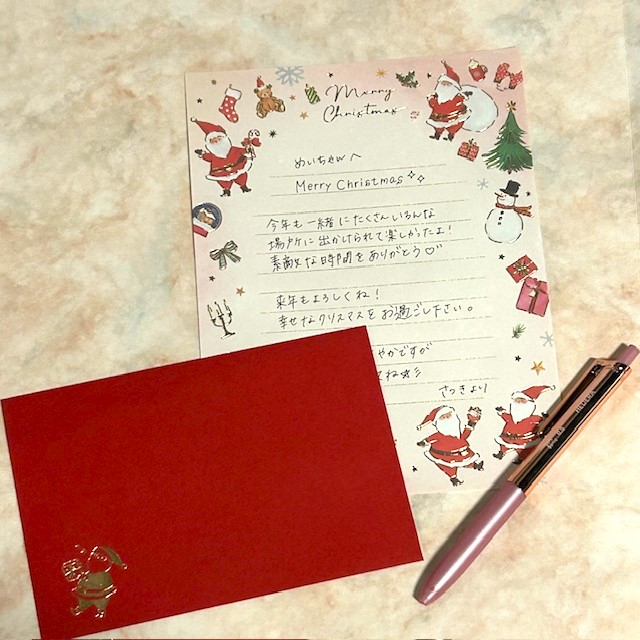 Merry
Christmas
めいちゃんへ
Merry Christmas
今年も一緒にたくさんいろんな
場所に出かけられて楽しかったよ!
素敵な時間をありがとう♡
来年もよろしくね!
幸せなクリスマスをお過ごし下さい。
やかですが
てね☆彡
さつきより